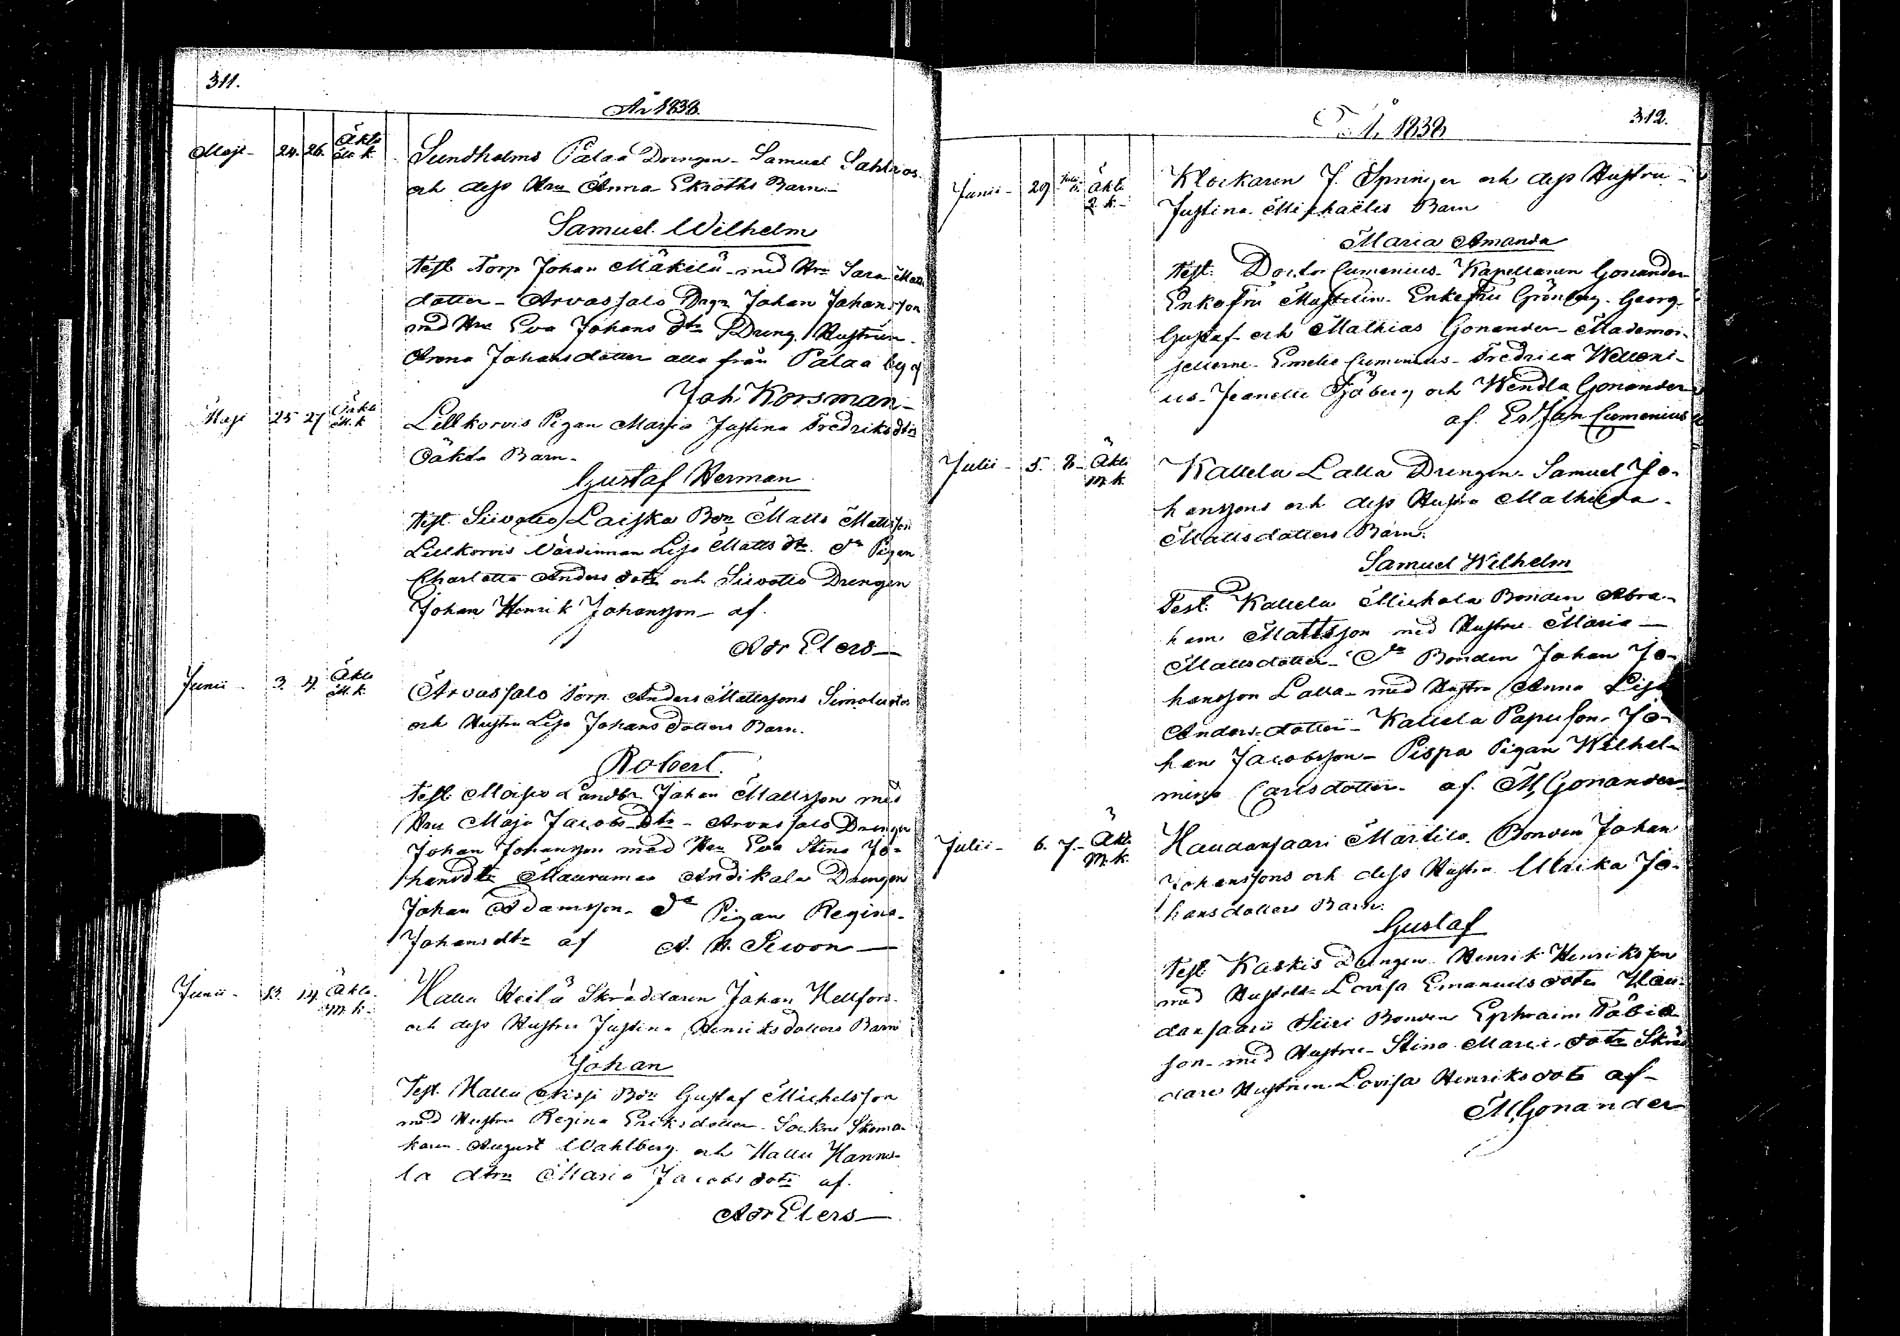 311.
År 1838.
Maji - 24. 26. Äkta M. k. Sundholms Palaa Drengen - Samuel Sahlroos
och dess Hru Anna Ekroths Barn -
Samuel Wilhelm
Test. Torp Johan Mäkilä med Hru Sara Matts
dotter - Arvassalo Drgn Johan Johansson
med Hru Eva Johans dtr Dreng Hustrun
Anna Johansdotter alla från Palaa by af
Joh Korsman -
Maji 25 27 Oäkta M. k Lillkorvis Pigan Maja Justina Fredriks dtrs
Oäkta Barn -
Gustaf Herman
Test. Siivotio Laiska Bon Matts Mattsson
Lillkorvis Värdinnan Lisa Matts dtr. do Pigan
Charlotta Anders dotr och Siivotio Drengen
Johan Henrik Johansson - af
Adr Elers -
Junii - 3. 4. Äkta M. k Arvassalo Torp Anders Mattssons
och Hustru Lisa Johans dotters Barn.
Robert.
Test. Landb. Johan Mattsson med
Hru Maja Jacobs dtr - Arvassalo Drengen
Johan Johansson med Hru Eva Stina Jo-
hansdtr Maurumaa Andikala Drengen
Johan Adamsson - do Pigan Regina
Johans dtr af A. H.
Junii - 13. 14. Äkta M. k. Hallu Heilä Skräddaren Johan Hellfors
och dess Hustru Justina Henriks dotters Barn
Johan
Test. Hallu Bon Gustaf Michelsson
med Hustru Regina Eriksdotter - Sockne Skoma-
karen August Wahlberg och Hallu Hannu-
la dtrn Maria Jacobs dotr af
Adr Elers -
312.
År 1838
Junii - 29 Julii Äkta 2. k. - Klockaren J. Springer och dess Hustru -
Justina Michaëlis Barn
Maria Amanda
Test. Doctor Cumenius - Kapellanen Gonander
Enkefru Enkefru Grönberg - Georg
Gustaf och Mathias Gonander - Mademoi-
sellerne - Emelie Cumenius - Fredrica Welleni-
us - Jeanette Sjöberg och Wendla Gonander
af Er Jan Cumenius
Julii - 5. 8 - Äkta M. k. Kallela Lalla Drengen - Samuel Jo-
hanssons och dess Hustru Mathilda -
Mattsdotters Barn.
Samuel Wilhelm
Test. Kallela Mickola Bonden Abra-
ham Mattsson med Hustru Maria -
Mattsdotter - do Bonden Johan Jo-
hansson Lalla - med Hustru Anna Lisa
Anders dotter - Kallela Papu Son - Jo-
han Jacobsson - Pispa Pigan Wilhel-
mina Carlsdotter - af M. Gonander -
Julii - 6. 7. - Äkta M. k. Haudansaari Märtilä Bonden Johan
Johanssons och dess Hustru Ulrika Jo-
hansdotters Barn.
Gustaf
Test. Kaskis Drengen Henrik Henriksson
med Hustru Lovisa Emanuels dotr Hau-
dansaari Siiri Bonden Ephraim Tobia-
son - med Hustru - Stina Maria dotr Skräd-
dare Hustrun Lovisa Henriksdotr af -
M. Gonander